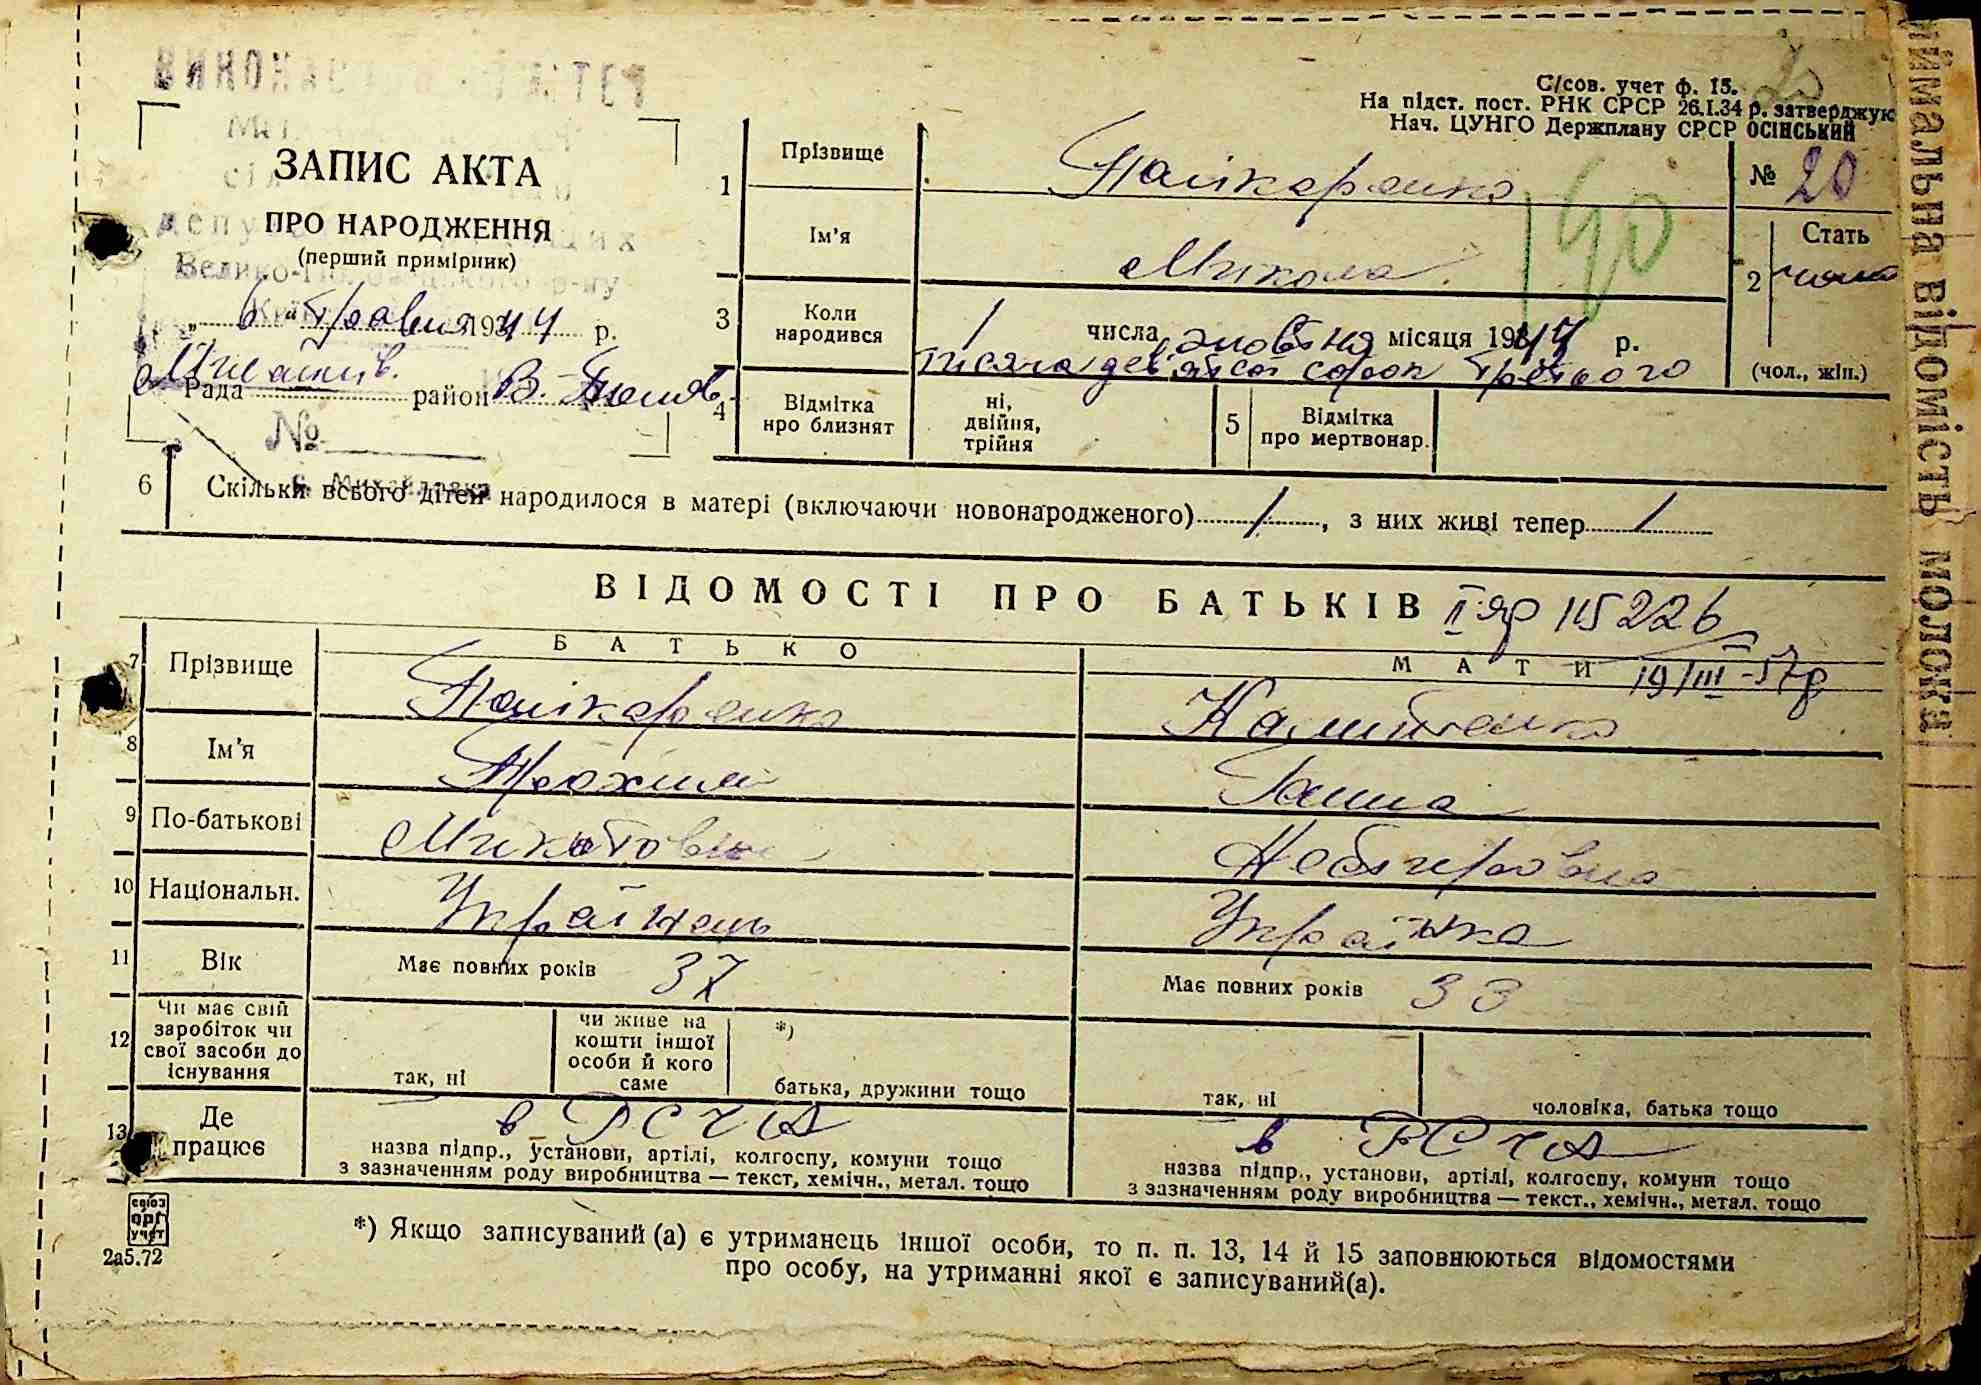 С/сов. учет ф. 15.
На підст. пост. РНК СРСР 26.I.34 р. затверджую
Нач. ЦУНГО Держплану СРСР ОСІНСЬКИЙ
ЗАПИС АКТА
ПРО НАРОДЖЕННЯ
(перший примірник)
Велико-
„ 6 " травня 1944 р.
Рада район В.
№
с. Михайлівка
1 Прізвище
№ 20
Ім'я Микола
190
2 Стать
(чол., жін.)
3 Коли народився 1 числа жовтня місяця 194 р.
тисяча дев'ятсот сорок третього
4 Відмітка про близнят ні, двійня, трійня
5 Відмітка про мертвонар.
6 Скільки всього дітей народилося в матері (включаючи новонародженого) 1, з них живі тепер 1
ВІДОМОСТІ ПРО БАТЬКІВ
II яр 115226
19/III-57р
БАТЬКО МАТИ
7 Прізвище
8 Ім'я Трохим Ганна
9 По-батькові
10 Національн. Українець Українка
11 Вік Має повних років 37 Має повних років 33
12 Чи має свій заробіток чи свої засоби до існування
так, ні
чи живе на кошти іншої особи й кого саме
*)
батька, дружини тощо
так, ні
чоловіка, батька тощо
13 Де працює в РСЧА в РСЧА
назва підпр., установи, артілі, колгоспу, комуни тощо
з зазначенням роду виробництва — текст, хемічн., метал. тощо
назва підпр., установи, артілі, колгоспу, комуни тощо
з зазначенням роду виробництва — текст., хемічн., метал. тощо
союз
орг
учет
2а5.72
*) Якщо записуваний (а) є утриманець іншої особи, то п. п. 13, 14 й 15 заповнюються відомостями
про особу, на утриманні якої є записуваний(а).
ЙМАЛЬНА ВІДОМІСТЬ МОЛОКА